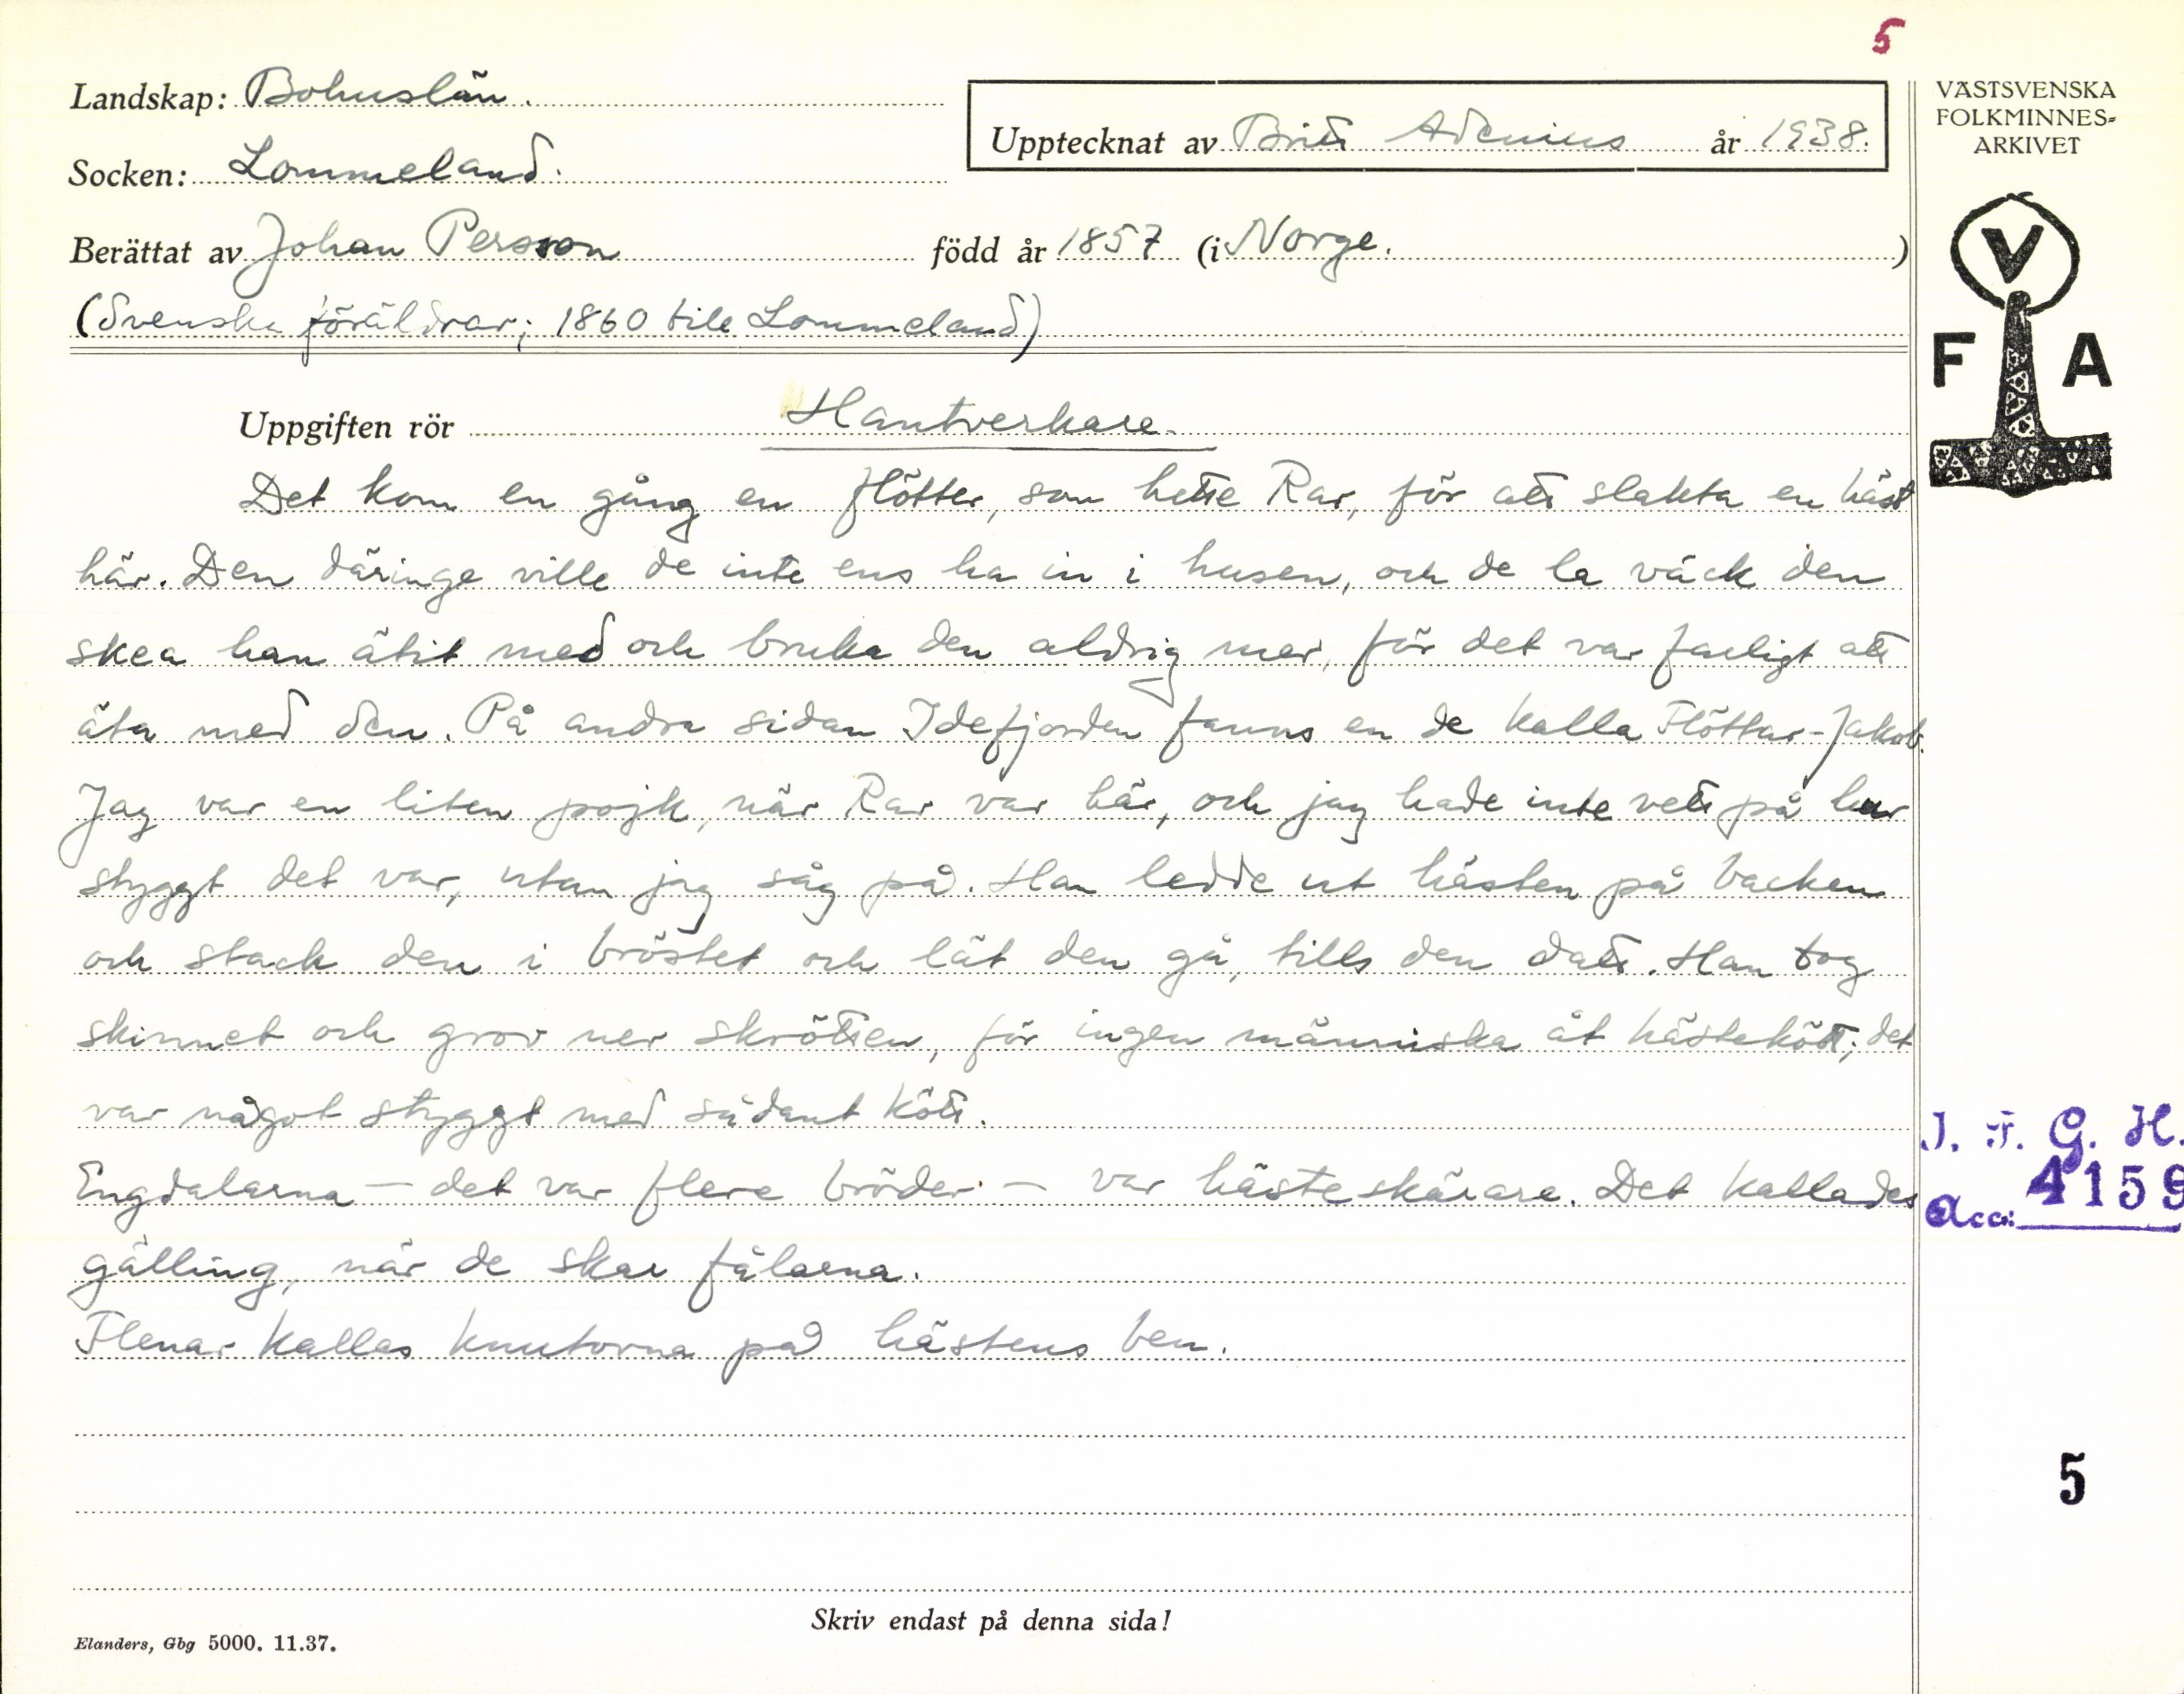 5
Landskap: Bohuslän.
Upptecknat av Britt Adenius år 1938.
Socken: Lommeland.
Berättat av Johan Persson född år 1857 (i Norge.)
(Svenska föräldrar; 1860 till Lommeland)
VÄSTSVENSKA
FOLKMINNES-
ARKIVET
V
F A
Uppgiften rör Hantverkare.
Det kom en gång en flötter, som hette Rar, för att slakta en häst
här. Den däringe ville de inte ens ha in i husen, och de la väck den
skea han ätit med och bruka den aldrig mer, för det var farligt att
äta med den. På andra sidan Idefjorden fanns en de kalla Flöttar-Jakob.
Jag var en liten pojk, när Rar var här, och jag hade inte vett på hur
styggt det var, utan jag såg på. Han ledde ut hästen på backen
och stack den i bröstet och lät den gå, tills den datt. Han tog
skinnet och grov ner skrötten, för ingen människa åt hästekött; det
var något styggt med sådant kött.
Engdalarna – det var flere bröder – var hästeskärare. Det kallades
gälling, när de skar fålarna.
Flenar kallas knutorna på hästens ben.
I. F. G. H.
Acc: 4159
5
Skriv endast på denna sida!
Elanders, Gbg 5000. 11.37.